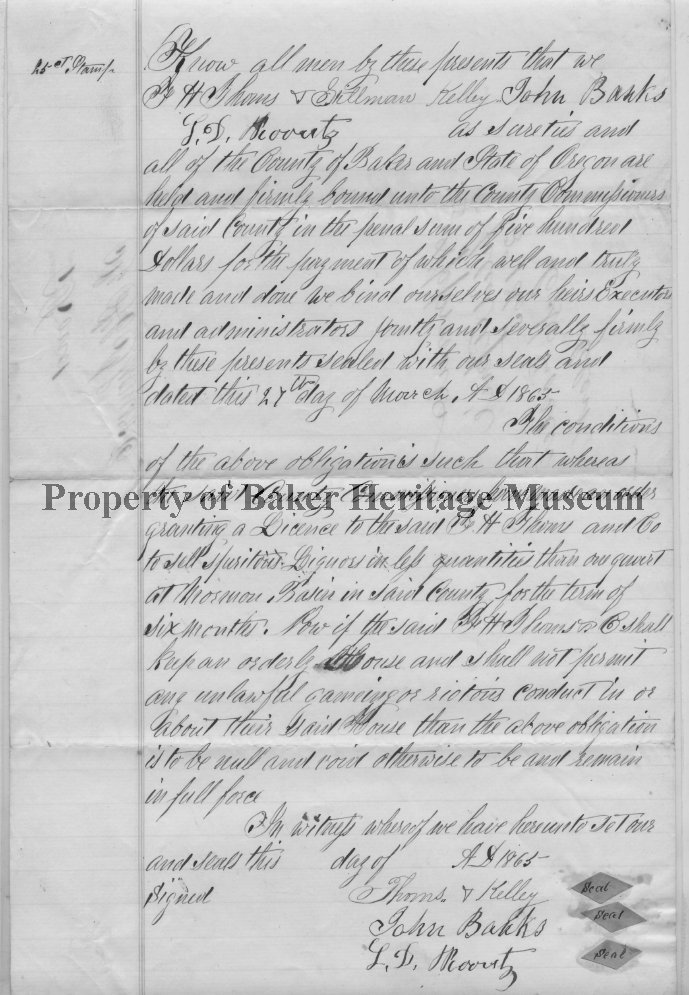 25 ct Stamp
Know all men by these presents that we
F H Thoms & Stillman Kelley John Banks
L. D. as sureties and
all of the County of Baker and State of Oregon are
held and firmly bound unto the County Commissioners
of said County in the penal sum of five hundred
Dollars for the payment of which well and truly
made and done we bind ourselves our heirs Executors
and administrators jointly and severally firmly
by these presents sealed with our seals and
dated this 27th day of March AD 1865
The conditions
of the above obligation is such that whereas
the said County an order
Property of Baker Heritage Museum
granting a Licence to the said F H Thoms and Co
to sell spiritous Liquors in less quantities than one quart
at Mormon Basin in said County for the term of
six months. Now if the said F H Thoms & C shall
keep an orderly House and shall not permit
any unlawful gameing or riotous conduct in or
about their said House than the above obligation
is to be null and void otherwise to be and remain
in full force
In witness whereof we have hereunto set our
and seals this day of AD 1865
Signed Thoms. & Kelley Seal
John Banks Seal
L. D. Seal